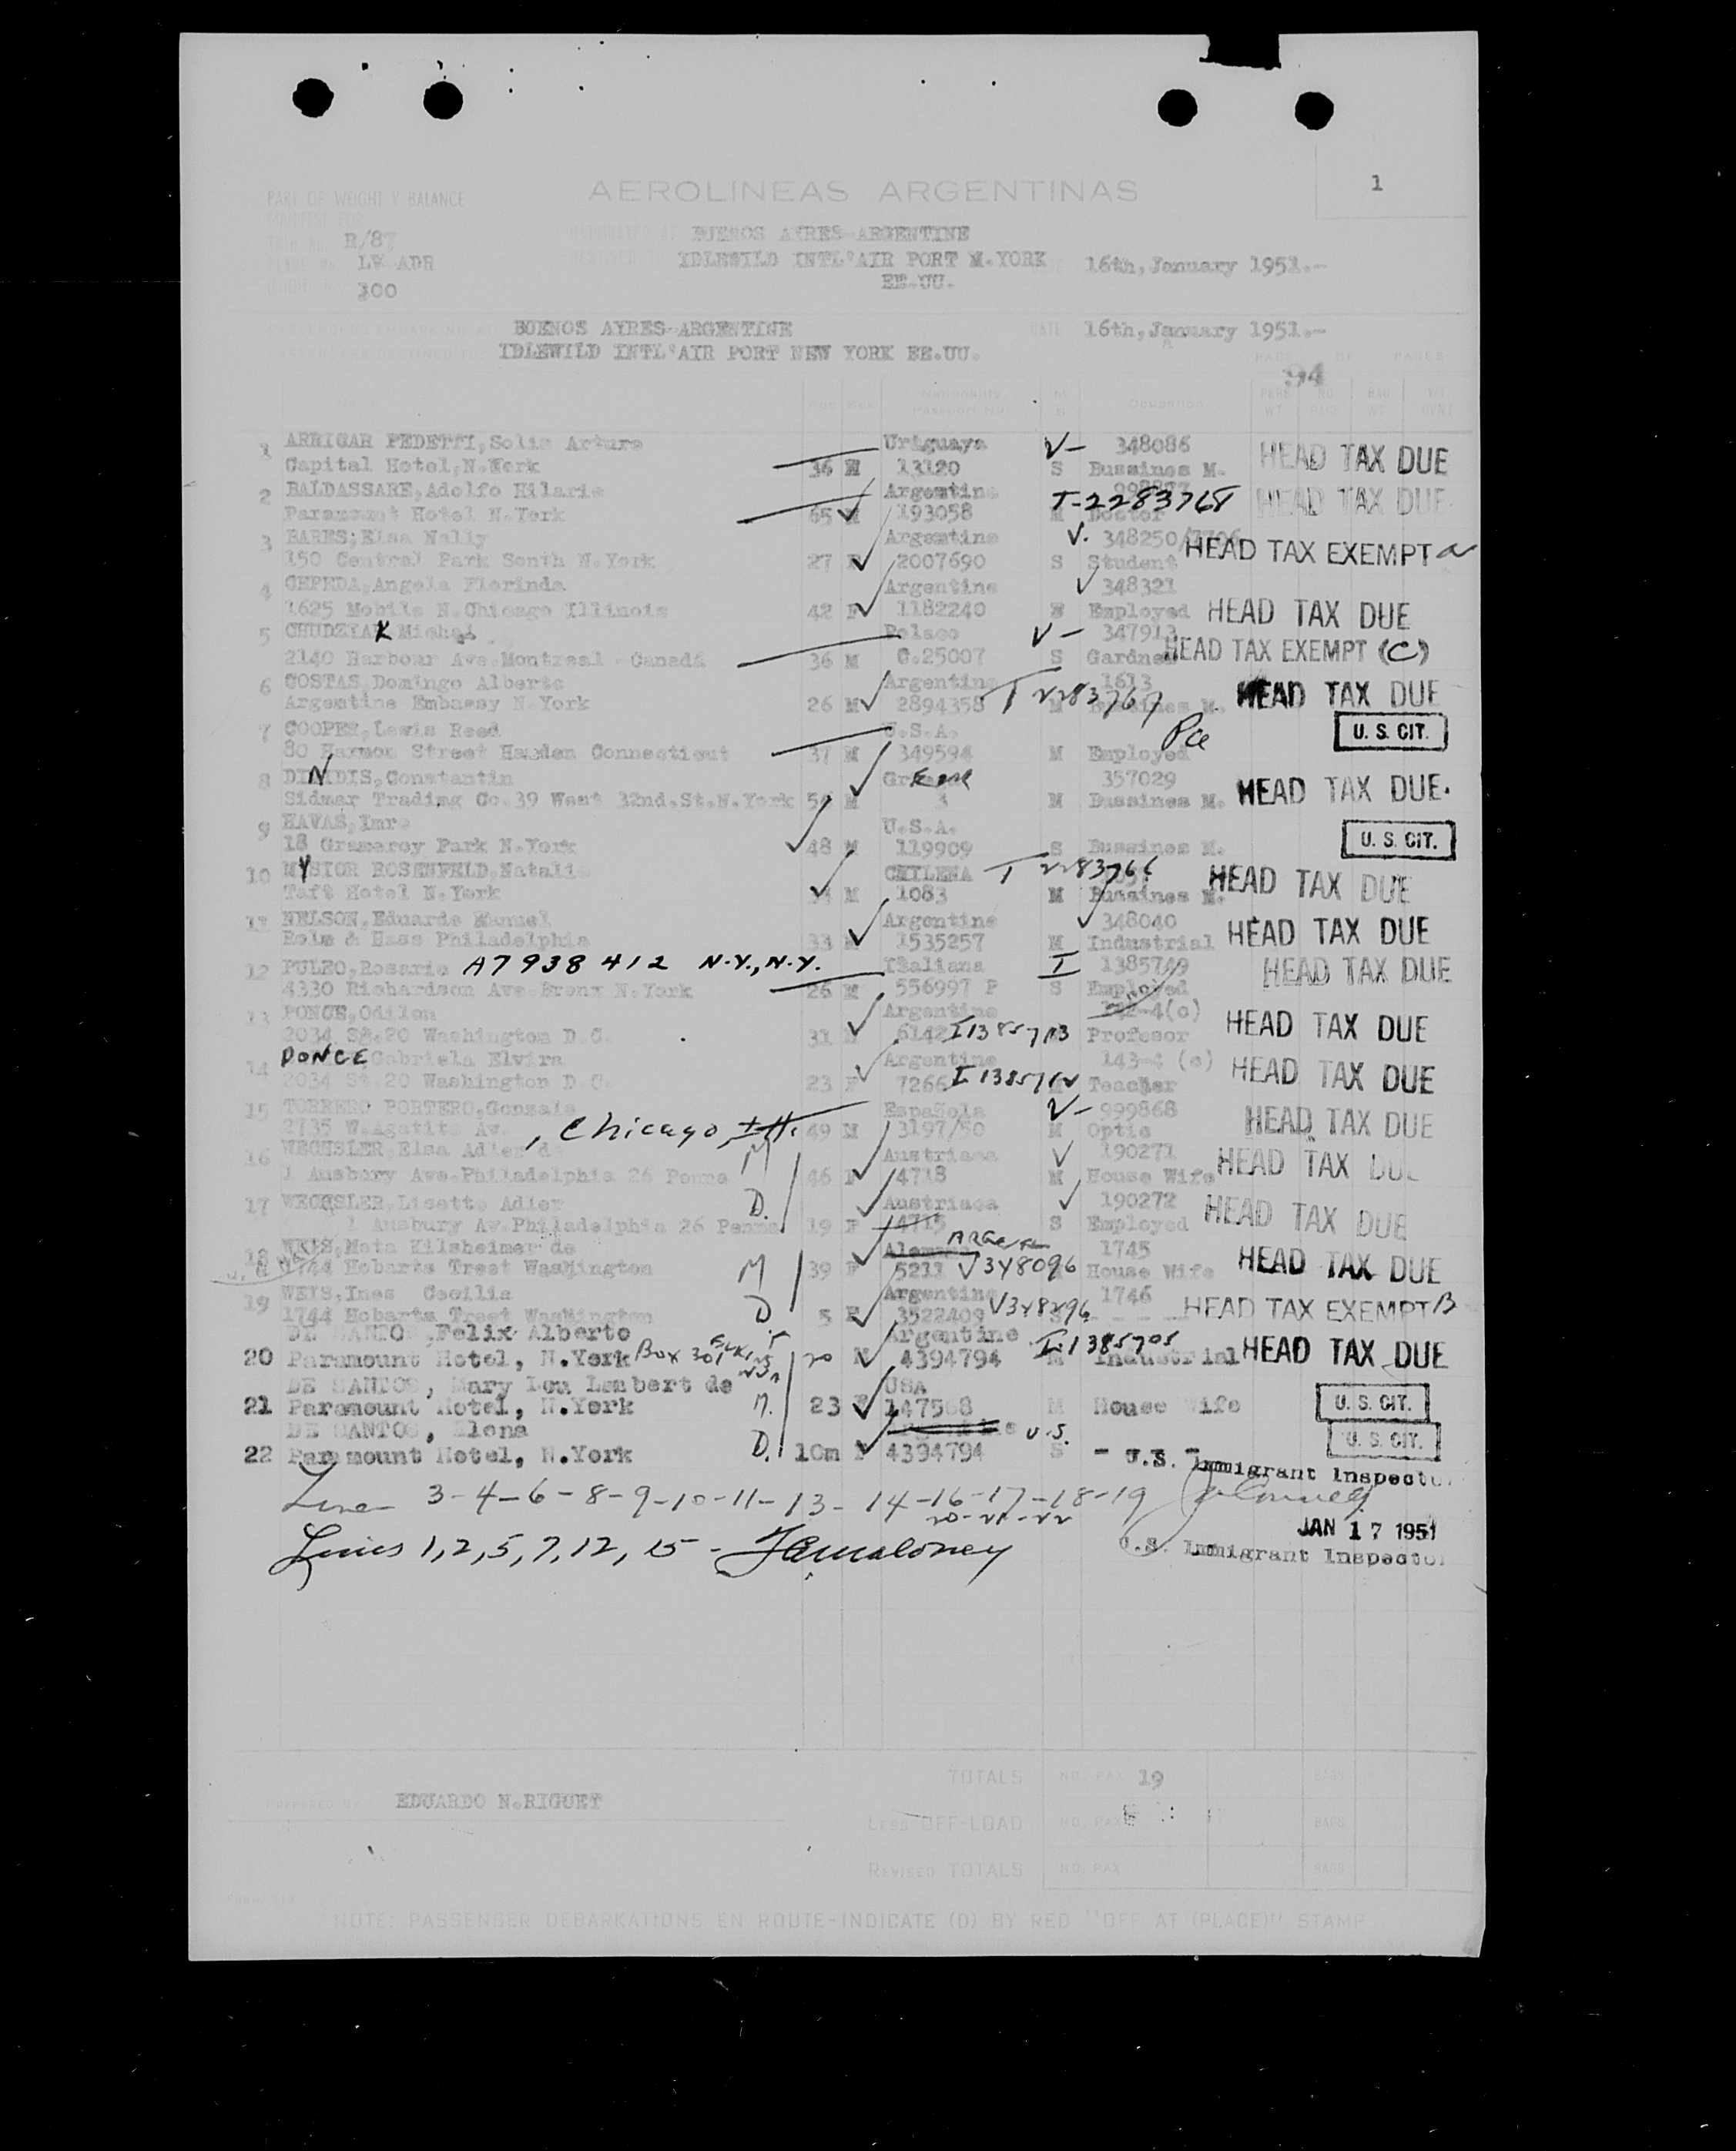 1
PART OF WEIGHT Y BALANCE
AEROLINEAS ARGENTINAS
R/87
BUENOS AYRES-ARGENTINE
LV ADR
IDLEWILD INTL'AIR PORT N.YORK
16th, January 1951.-
300
EE.UU.
BUENOS AYRES-ARGENTINE
DATE 16th, January 1951.-
IDLEWILD INTL'AIR PORT NEW YORK EE.UU.
PAGE OF PAGES
94
1 ARRIGAR PEDETTI, Solis Arturo Uruguaya V- 348086 HEAD TAX DUE
Capital Hotel, N.York 34 M 13120 S Bussines M.
2 BALDASSARE, Adolfo Hilario Argentina T-2283768 HEAD TAX DUE
Paramount Hotel N.York 65 M 193058 M Doctor
3 BARES, Elsa Nelly Argentina V. 348250 HEAD TAX EXEMPT a
150 Central Park South N.York 27 F 2007690 S Student
4 CEPEDA, Angela Florinda Argentina 348321
1625 Mobile N.Chicago Illinois 42 F 1182240 Employed HEAD TAX DUE
5 CHUDZYAK Michal Polaco V- 347913 HEAD TAX EXEMPT (C)
2140 Harbour Ave.Montreal - Canadá 36 M C.25007 S Gardner
6 COSTAS, Domingo Alberto Argentina 1613 HEAD TAX DUE
Argentine Embassy N.York 26 M 2894358 T 2283767 M Bussines M.
7 COOPER, Lewis Reed U.S.A. U.S. CIT.
80 Harmon Street Hamden Connecticut 37 M 349594 M Employed
8 DINIDIS, Constantin 357029 HEAD TAX DUE.
Sidmar Trading Co.39 West 32nd.St.N.York M M Bussines M.
9 HAVAS, Imre U.S.A. U.S. CIT.
18 Gramercy Park N.York 48 M 119909 S Bussines M.
10 MYSIOR ROSENFELD, Natalio CHILENA T 2283766 HEAD TAX DUE
Taft Hotel N.York M 1083 M Bussines M.
11 NELSON, Eduardo Manuel Argentina 348040 HEAD TAX DUE
Rohm & Hass Philadelphia 33 M 1535257 M Industrial
12 PULEO, Rosario A7938412 N.Y., N.Y. Italiana I 1385749 HEAD TAX DUE
4330 Richardson Ave.Bronx N.York 26 M 556997 P S Employed
13 PONCE, Odilon Argentina HEAD TAX DUE
2034 St.20 Washington D.C. 31 M 6142 I1385713 Profesor
14 PONCE Gabriela Elvira Argentina 143-4 (c) HEAD TAX DUE
2034 St.20 Washington D.C. 23 F 7266 Teacher
15 TORRERO PORTERO, Gonzalo Española V- 999868 HEAD TAX DUE
2735 W.Agatite Av. , Chicago, Ill. 49 M 3197/50 M Optic
16 WECHSLER, Elsa Adler de M Austriaca V 190271 HEAD TAX DUE
1 Ausbury Ave.Philadelphia 26 Penna 46 F 4718 M House Wife
17 WECHSLER, Lisette Adler D. Austriaca 190272 HEAD TAX DUE
1 Ausbury Av.Philadelphia 26 Penna 19 F 4715 S Employed
18 WEIS, Meta Kilsheimer de 1745 HEAD TAX DUE
1744 Hobarts Treet Washington M 39 F 5211 V348096 House Wife
19 WEIS, Ines Cecilia Argentina 1746 HEAD TAX EXEMPT B
1744 Hobarts Treet Washington D 5 F 3522409 S
DE SANTOS, Felix Alberto Argentine I-1385705 HEAD TAX DUE
20 Paramount Hotel, N.York Box 301 20 M 4394794 M Industrial
DE SANTOS, Mary Lou Lambert de USA U.S. CIT.
21 Paramount Hotel, N.York M. 23 F 147568 M House Wife
DE SANTOS, Elena U.S. U.S. CIT.
22 Paramount Hotel, N.York D. 10m F 4394794 S -
U.S. Immigrant Inspector
Lines 3-4-6-8-9-10-11-13-14-16-17-18-19
20-21-22
JAN 17 1951
Lines 1,2,5,7,12,15 -
U.S. Immigrant Inspector
TOTALS NO. PAX 19
PREPARED BY EDUARDO N.RIGUET
LESS OFF-LOAD NO. PAX BAGS
REVISED TOTALS NO. PAX BAGS
NOTE: PASSENGER DEBARKATIONS EN ROUTE-INDICATE (D) BY RED "OFF AT (PLACE)" STAMP